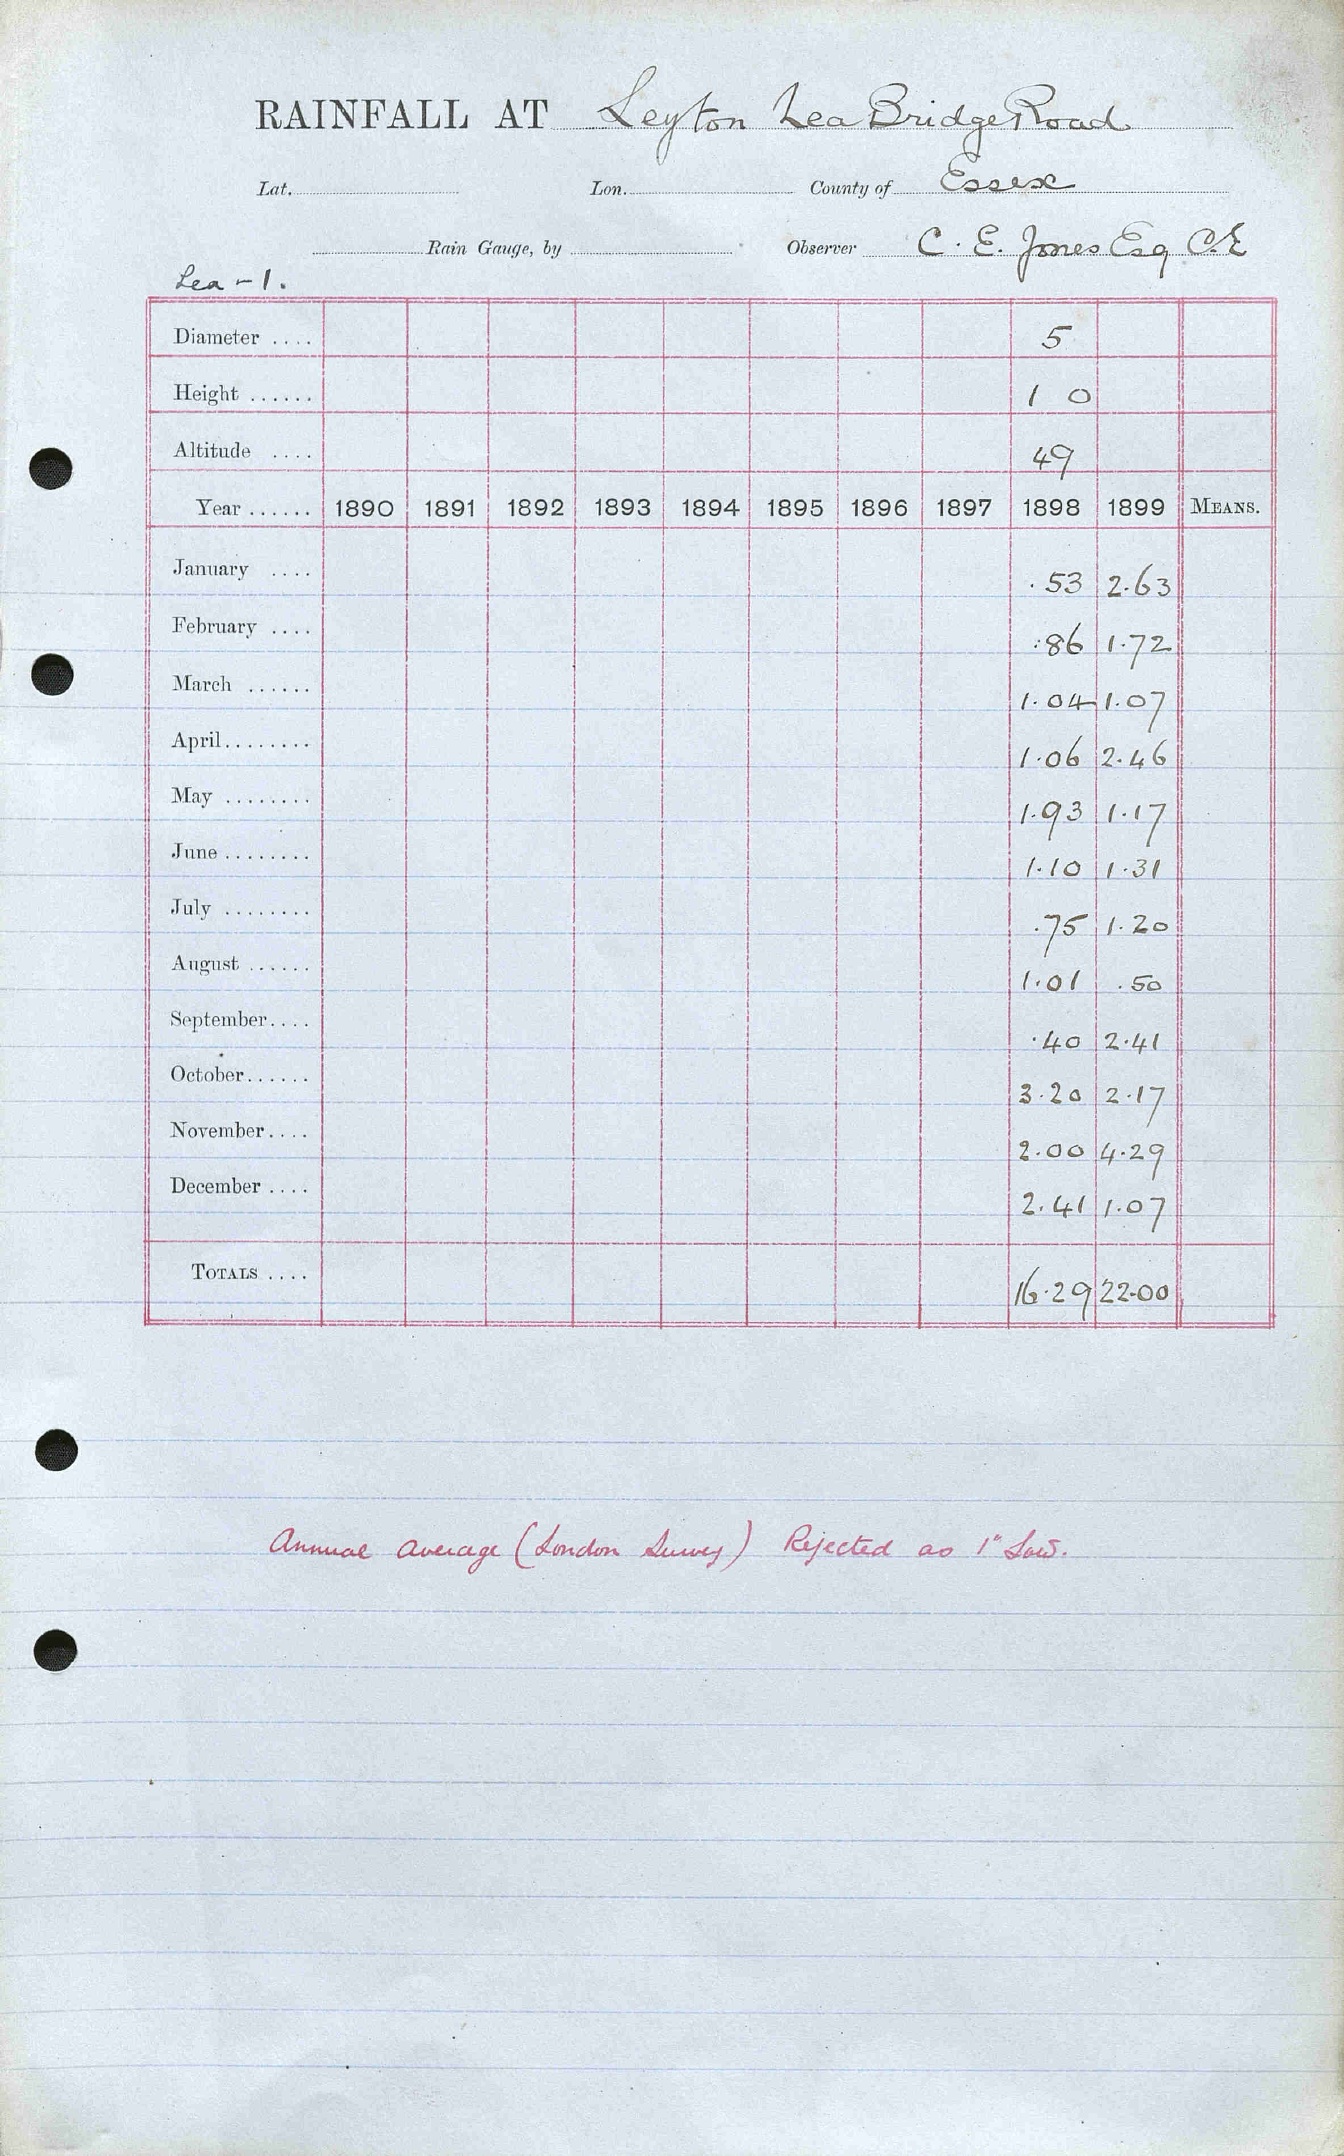 RAINFALL AT Leyton Lea Bridge Road
Lat. Lon. County of Essex
Rain Gauge, by Observer C. E. Jones Esq C.E
Lea - 1.
Diameter .... 5
Height ...... 1 0
Altitude .... 49
Year ...... 1890 1891 1892 1893 1894 1895 1896 1897 1898 1899 MEANS.
January .... .53 2.63
February .... .86 1.72
March ...... 1.04 1.07
April........ 1.06 2.46
May ........ 1.93 1.17
June ........ 1.10 1.31
July ........ .75 1.20
August ...... 1.01 .50
September.... .40 2.41
October...... 3.20 2.17
November.... 2.00 4.29
December .... 2.41 1.07
TOTALS .... 16.29 22.00
Annual average (London Survey) Rejected as 1" Low.